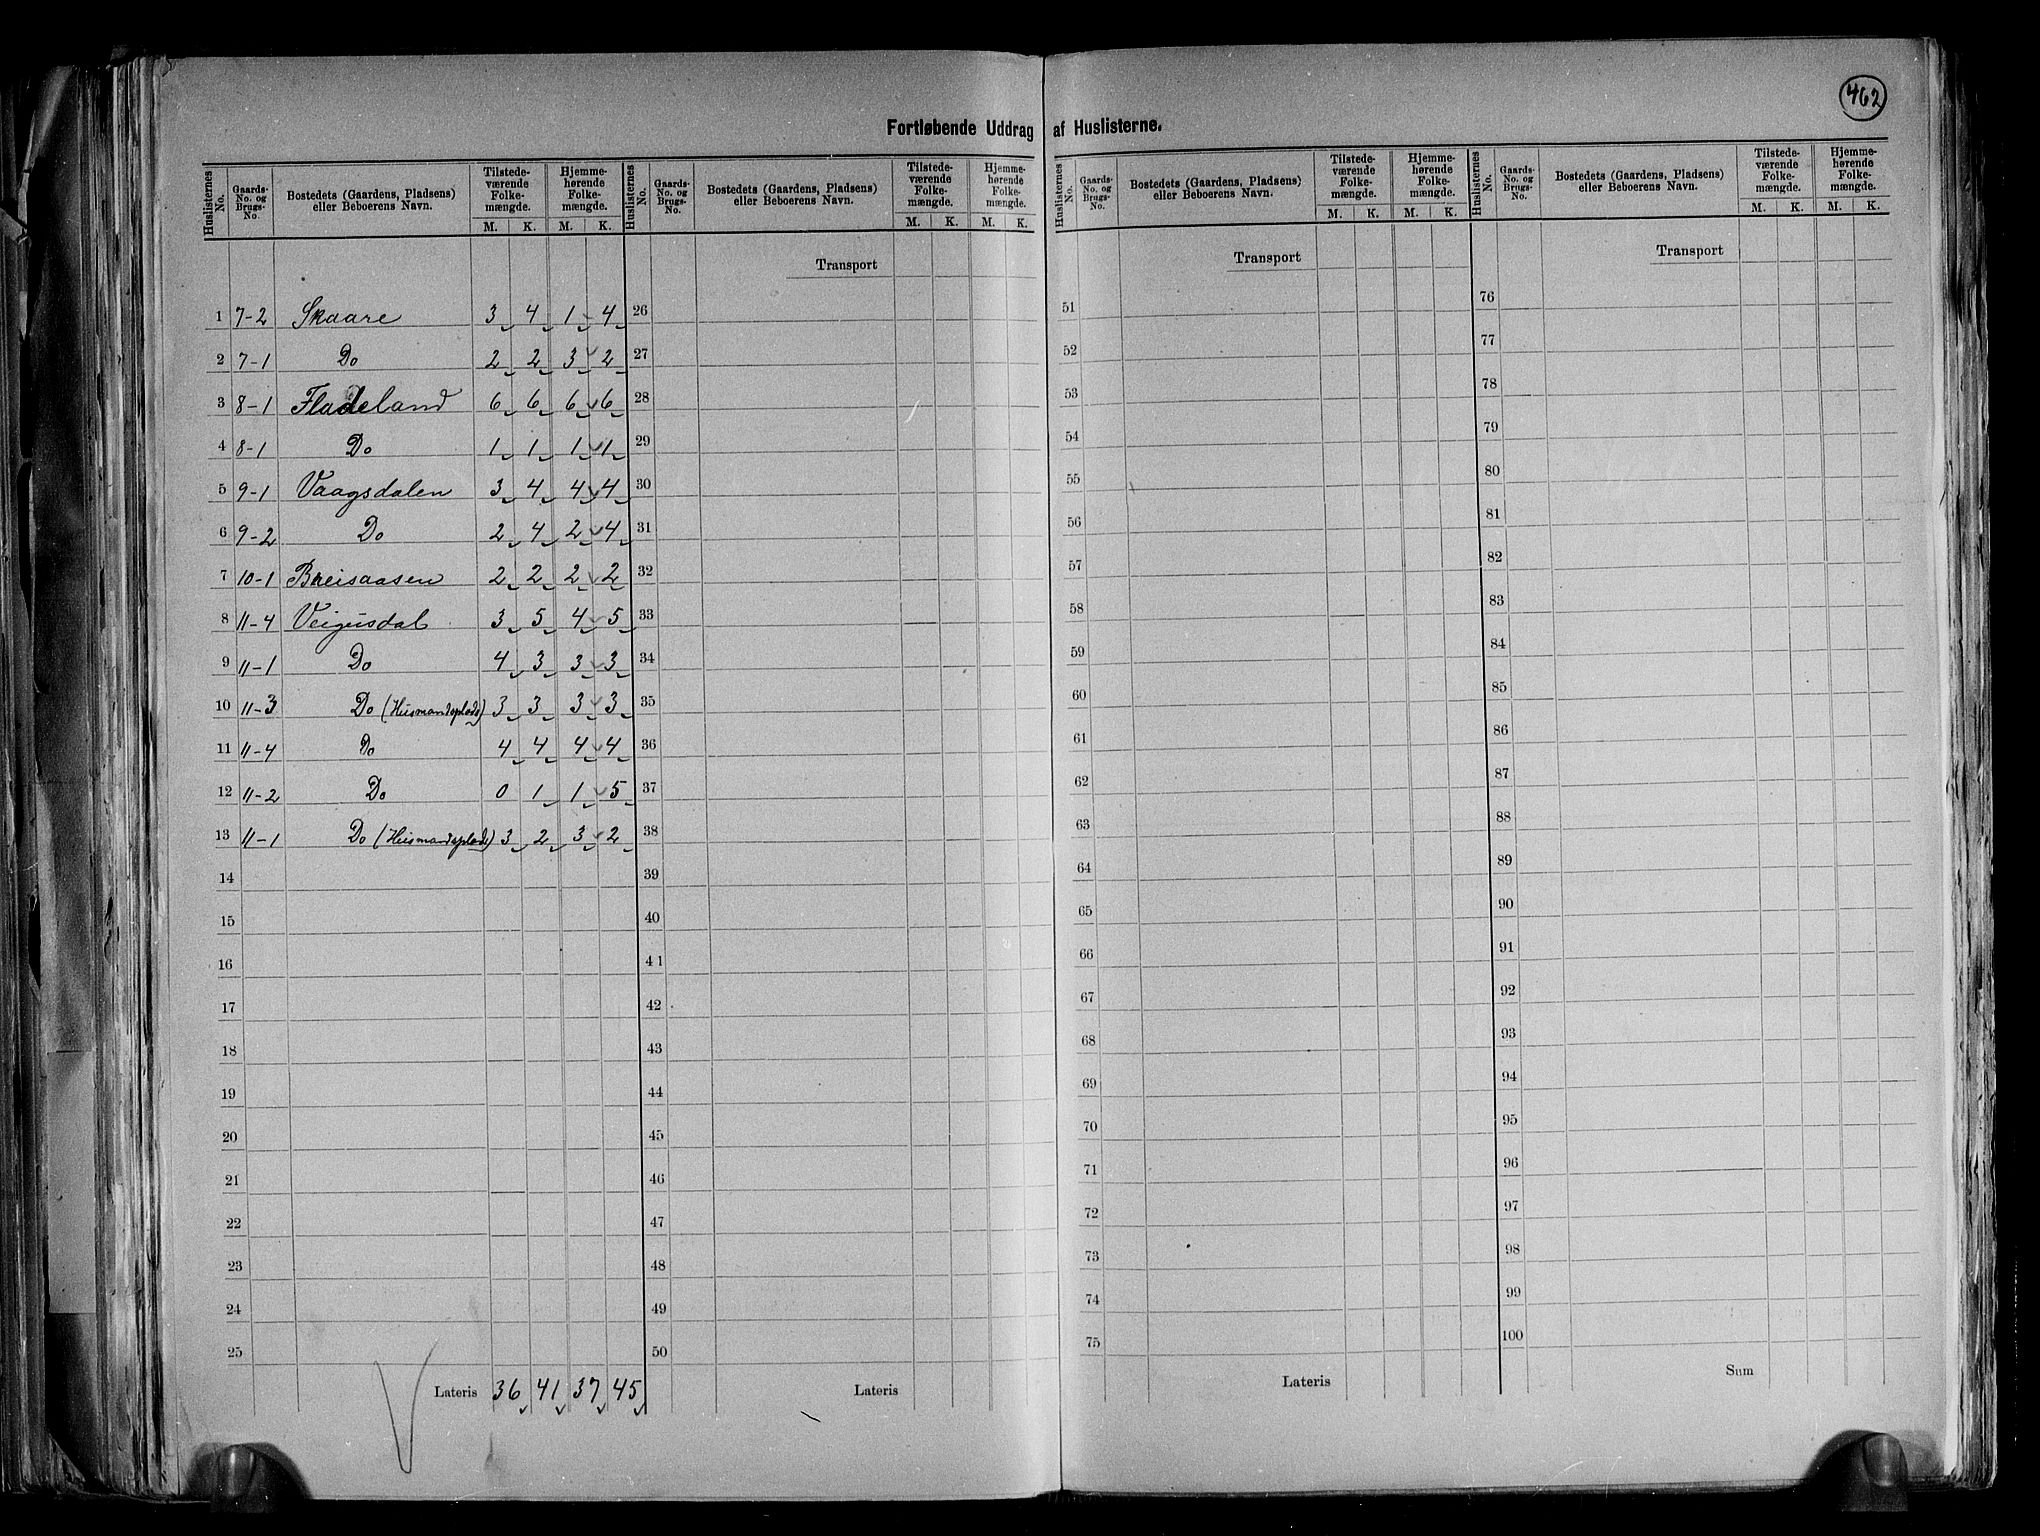 462
Fortløbende Uddrag af Huslisterne.
Huslisternes No. | Gaards-No. og Brugs-No. | Bostedets (Gaardens, Pladsens) eller Beboerens Navn. | Tilstedeværende Folkemængde. M. K. | Hjemmehørende Folkemængde. M. K.
Huslisternes No. | Gaards-No. og Brugs-No. | Bostedets (Gaardens, Pladsens) eller Beboerens Navn. | Tilstedeværende Folkemængde. M. K. | Hjemmehørende Folkemængde. M. K.
Huslisternes No. | Gaards-No. og Brugs-No. | Bostedets (Gaardens, Pladsens) eller Beboerens Navn. | Tilstedeværende Folkemængde. M. K. | Hjemmehørende Folkemængde. M. K.
Huslisternes No. | Gaards-No. og Brugs-No. | Bostedets (Gaardens, Pladsens) eller Beboerens Navn. | Tilstedeværende Folkemængde. M. K. | Hjemmehørende Folkemængde. M. K.
1 7-2 Skaare 3 4 1 4
2 7-1 Do 2 2 3 2
3 8-1 Fladeland 6 6 6 6
4 8-1 Do 1 1 1 1
5 9-1 Vaagsdalen 3 4 4 4
6 9-2 Do 2 4 2 4
7 10-1 Breisaasen 2 2 2 2
8 11-4 Veigusdal 3 5 4 5
9 11-1 Do 4 3 3 3
10 11-3 Do (Husmandsplads) 3 3 3 3
11 11-4 Do 4 4 4 4
12 11-2 Do 0 1 1 5
13 11-1 Do (Husmandsplads) 3 2 3 2
14
15
16
17
18
19
20
21
22
23
24
25
Lateris 36 41 37 45
Transport
26
27
28
29
30
31
32
33
34
35
36
37
38
39
40
41
42
43
44
45
46
47
48
49
50
Lateris
Transport
51
52
53
54
55
56
57
58
59
60
61
62
63
64
65
66
67
68
69
70
71
72
73
74
75
Lateris
Transport
76
77
78
79
80
81
82
83
84
85
86
87
88
89
90
91
92
93
94
95
96
97
98
99
100
Sum